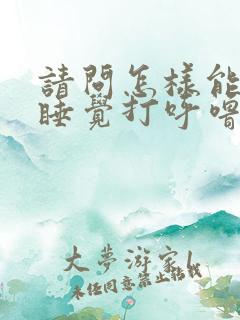 請問怎樣能
睡覺打呼嚕
大夢游家
未任同意禁止轉載